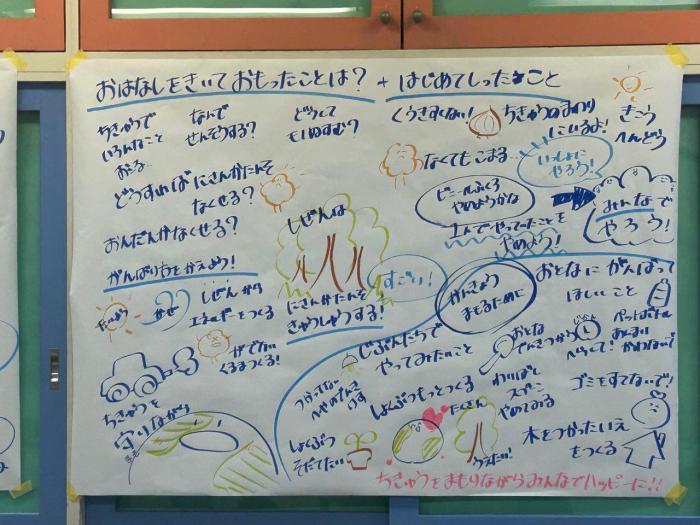 おはなしをきいて おもったことは? + はじめてしったこと
ちきゅうで
いろんなこと
おこる…
なんで
せんそうする?
どうして
くうきすくない!
ちきゅうのまわり
にいるよ!
きこう
へんどう
どうすれば にさんかたんそ
なくせる?
なくてもこまる…
いっしょに
やろう!
おんだんかなくせる?
しぜんは
にさんかたんそを
きゅうしゅうする!
すごい!
ビニールぶくろ
やめようかな
1人でやってたことを
やめよう!
みんなで
やろう!
がんばりやをかえよう!
たいよう
かぜ
しぜんから
エネルギーをつくる
がでない
くるまつくる!
ちきゅうを
守りながら
かんきょう
まもるために
おとなに がんばって
ほしいこと
じぶんたちで
やってみたいこと
つかってない
へやのでんき
けす
しょくぶつもっとつくる
たくさん
しょくぶつ
そだてたい
うえたい!
おとな
でんきつかう
じかん
へらして!
ペットボトル
あんまり
かわないで
わりばし
スプーン
やめてみる
ゴミをすてないで!
木をつかったいえ
をつくる
ちきゅうをまもりながらみんなでハッピーに!!